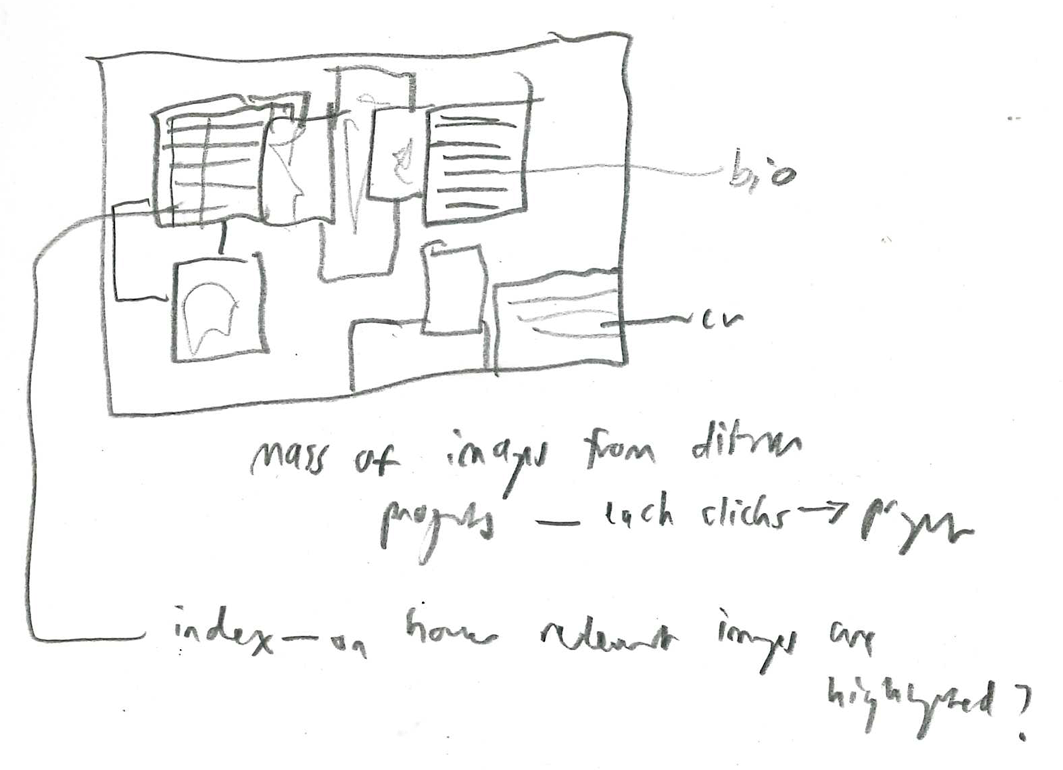 bio
cv
mass of images from different
projects — each clicks → project
index — on hover relevant images are
highlighted?